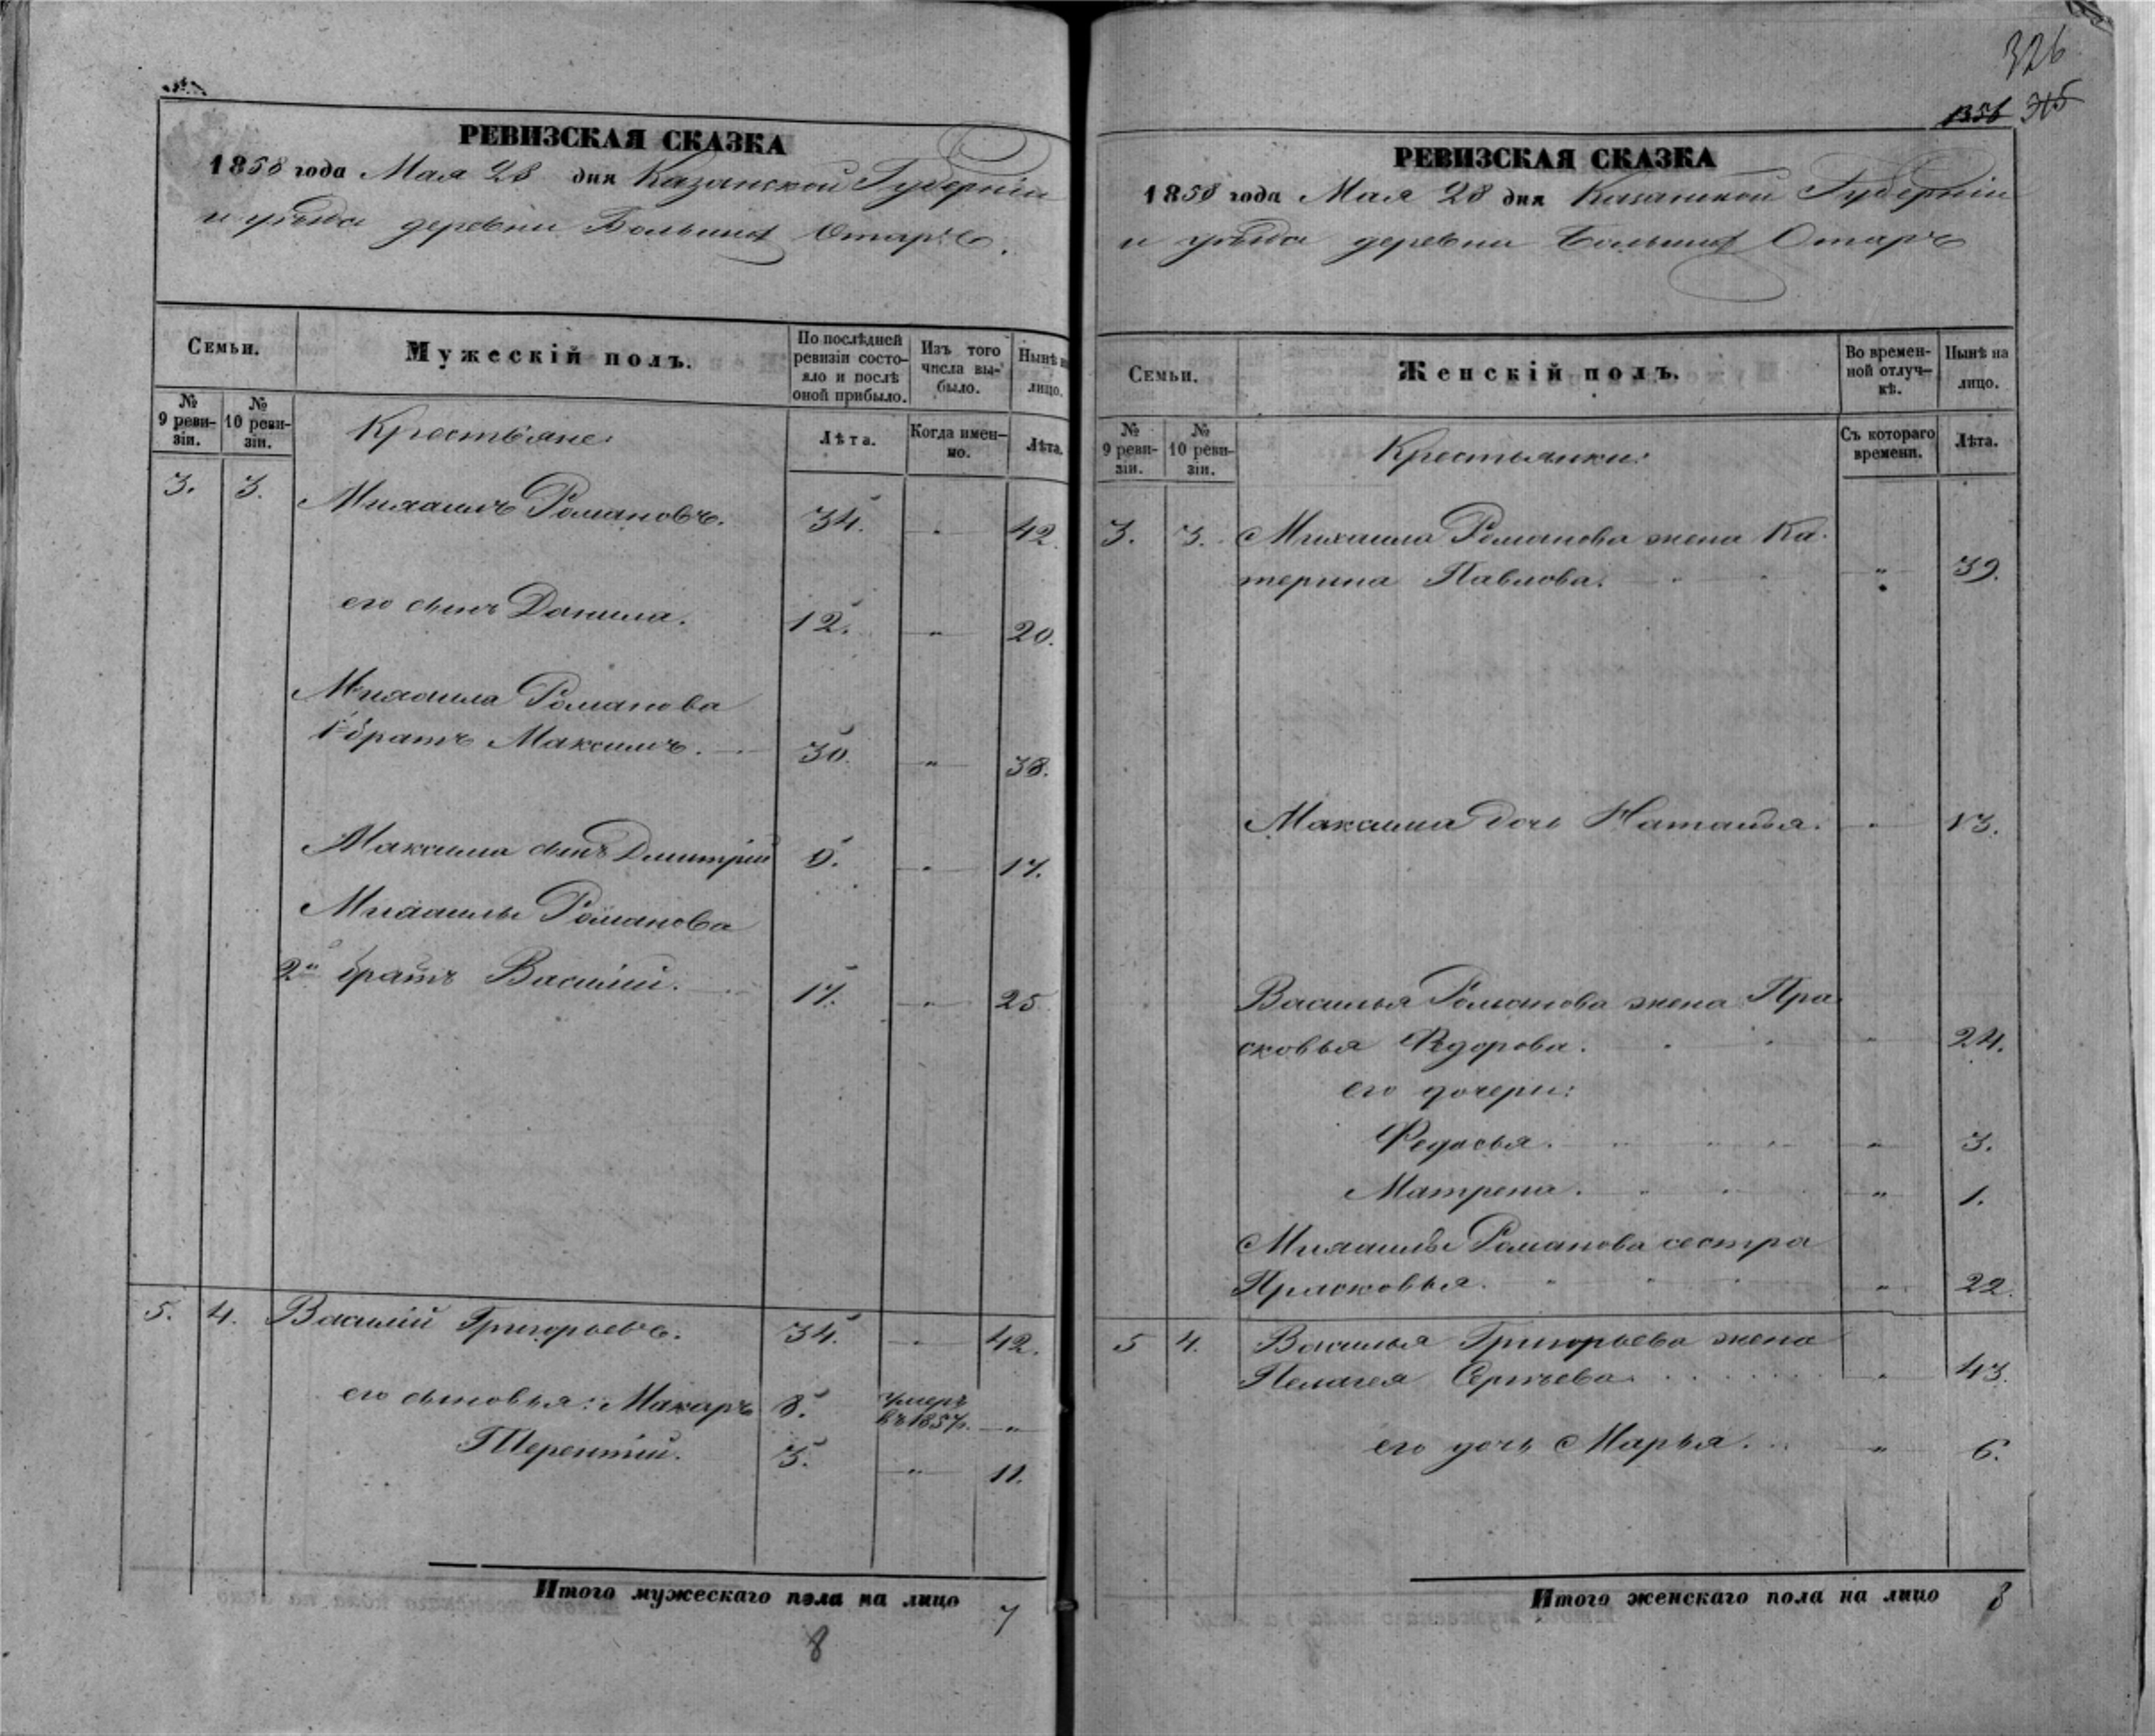 РЕВИЗСКАЯ СКАЗКА
1858 года Мая 28 дня Казанской Губерніи
и уѣзда деревни Большихъ Отаръ.
Семьи.
Мужескій полъ.
По послѣдней ревизіи состояло и послѣ оной прибыло.
Изъ того числа выбыло.
Нынѣ на лицо.
№ 9 ревизіи.
№ 10 ревизіи.
Крестьяне:
Лѣта.
Когда именно.
Лѣта.
3. 3. Михаилъ Романовъ. 34. " 42.
его сынъ Данила. 12. " 20.
Михаила Романова
1й братъ Максимъ. 30. " 38.
Максима сынъ Дмитрій 9. " 17.
Михаилы Романова
2й братъ Василій. 17. " 25.
5. 4. Василій Григорьевъ. 34. " 42.
его сыновья: Макаръ 8. умеръ въ 1857. "
Терентій. 3. " 11.
Итого мужескаго пола на лицо 7
8
326
1356 315
РЕВИЗСКАЯ СКАЗКА
1858 года Мая 28 дня Казанской Губерніи
и уѣзда деревни Большихъ Отаръ
Семьи.
Женскій полъ.
Во временной отлучкѣ.
Нынѣ на лицо.
№ 9 ревизіи.
№ 10 ревизіи.
Крестьянки:
Съ котораго времени.
Лѣта.
3. 3. Михаила Романова жена Ка-
терина Павлова. " 39.
Максима дочь Наталья. " 13.
Василья Романова жена Пра-
сковья Ѳедорова. " 24.
его дочери:
Федосья. " 3.
Матрена. " 1.
Михаилы Романова сестра
Прасковья. " 22.
5 4. Василья Григорьева жена
Пелагея Сергѣева. " 43.
его дочь Марья. " 6.
Итого женскаго пола на лицо 8